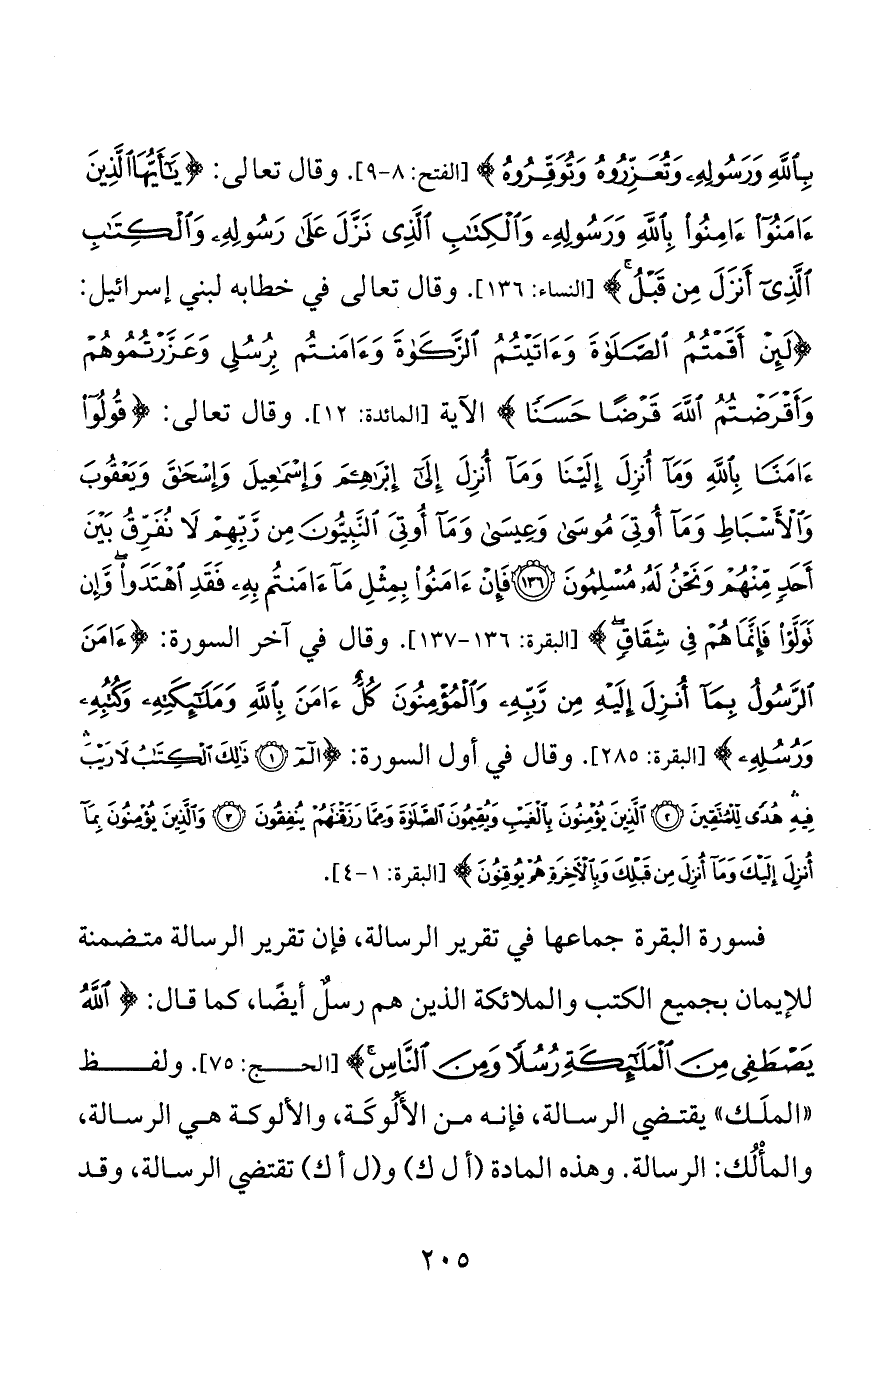 بِٱللَّهِ وَرَسُولِهِۦ وَتُعَزِّرُوهُ وَتُوَقِّرُوهُ ﴾ [الفتح: ٨-٩]. وقال تعالى: ﴿ يَٰٓأَيُّهَا ٱلَّذِينَ
ءَامَنُوٓا۟ ءَامِنُوا۟ بِٱللَّهِ وَرَسُولِهِۦ وَٱلْكِتَٰبِ ٱلَّذِى نَزَّلَ عَلَىٰ رَسُولِهِۦ وَٱلْكِتَٰبِ
ٱلَّذِىٓ أَنزَلَ مِن قَبْلُ ۚ ﴾ [النساء: ١٣٦]. وقال تعالى في خطابه لبني إسرائيل:
﴿لَئِنْ أَقَمْتُمُ ٱلصَّلَوٰةَ وَءَاتَيْتُمُ ٱلزَّكَوٰةَ وَءَامَنتُم بِرُسُلِى وَعَزَّرْتُمُوهُمْ
وَأَقْرَضْتُمُ ٱللَّهَ قَرْضًا حَسَنًا ﴾ الآية [المائدة: ١٢]. وقال تعالى: ﴿ قُولُوٓا۟
ءَامَنَّا بِٱللَّهِ وَمَآ أُنزِلَ إِلَيْنَا وَمَآ أُنزِلَ إِلَىٰٓ إِبْرَٰهِۦمَ وَإِسْمَٰعِيلَ وَإِسْحَٰقَ وَيَعْقُوبَ
وَٱلْأَسْبَاطِ وَمَآ أُوتِىَ مُوسَىٰ وَعِيسَىٰ وَمَآ أُوتِىَ ٱلنَّبِيُّونَ مِن رَّبِّهِمْ لَا نُفَرِّقُ بَيْنَ
أَحَدٍ مِّنْهُمْ وَنَحْنُ لَهُۥ مُسْلِمُونَ ﴿١٣٦﴾ فَإِنْ ءَامَنُوا۟ بِمِثْلِ مَآ ءَامَنتُم بِهِۦ فَقَدِ ٱهْتَدَوا۟ ۖ وَّإِن
نَوَلَّوْا۟ فَإِنَّمَا هُمْ فِى شِقَاقٍ ۖ ﴾ [البقرة: ١٣٦-١٣٧]. وقال في آخر السورة: ﴿ ءَامَنَ
ٱلرَّسُولُ بِمَآ أُنزِلَ إِلَيْهِ مِن رَّبِّهِۦ وَٱلْمُؤْمِنُونَ ۚ كُلٌّ ءَامَنَ بِٱللَّهِ وَمَلَٰٓئِكَتِهِۦ وَكُتُبِهِۦ
وَرُسُلِهِۦ ﴾ [البقرة: ٢٨٥]. وقال في أول السورة: ﴿الٓمٓ ﴿١﴾ ذَٰلِكَ ٱلْكِتَٰبُ لَا رَيْبَ ۛ
فِيهِ ۛ هُدًى لِّلْمُتَّقِينَ ﴿٢﴾ ٱلَّذِينَ يُؤْمِنُونَ بِٱلْغَيْبِ وَيُقِيمُونَ ٱلصَّلَوٰةَ وَمِمَّا رَزَقْنَٰهُمْ يُنفِقُونَ ﴿٣﴾ وَٱلَّذِينَ يُؤْمِنُونَ بِمَآ
أُنزِلَ إِلَيْكَ وَمَآ أُنزِلَ مِن قَبْلِكَ وَبِٱلْءَاخِرَةِ هُمْ يُوقِنُونَ ﴾ [البقرة: ١-٤].
فسورة البقرة جماعها في تقرير الرسالة، فإن تقرير الرسالة متضمنة
للإيمان بجميع الكتب والملائكة الذين هم رسلٌ أيضًا، كما قال: ﴿ ٱللَّهُ
يَصْطَفِى مِنَ ٱلْمَلَٰٓئِكَةِ رُسُلًا وَمِنَ ٱلنَّاسِ ۚ ﴾ [الحج: ٧٥]. ولفظ
«الملَك» يقتضي الرسالة، فإنه من الأَلُوكَة، والألوكة هي الرسالة،
والمأْلُك: الرسالة. وهذه المادة (أ ل ك) و(ل أ ك) تقتضي الرسالة، وقد
٢٠٥